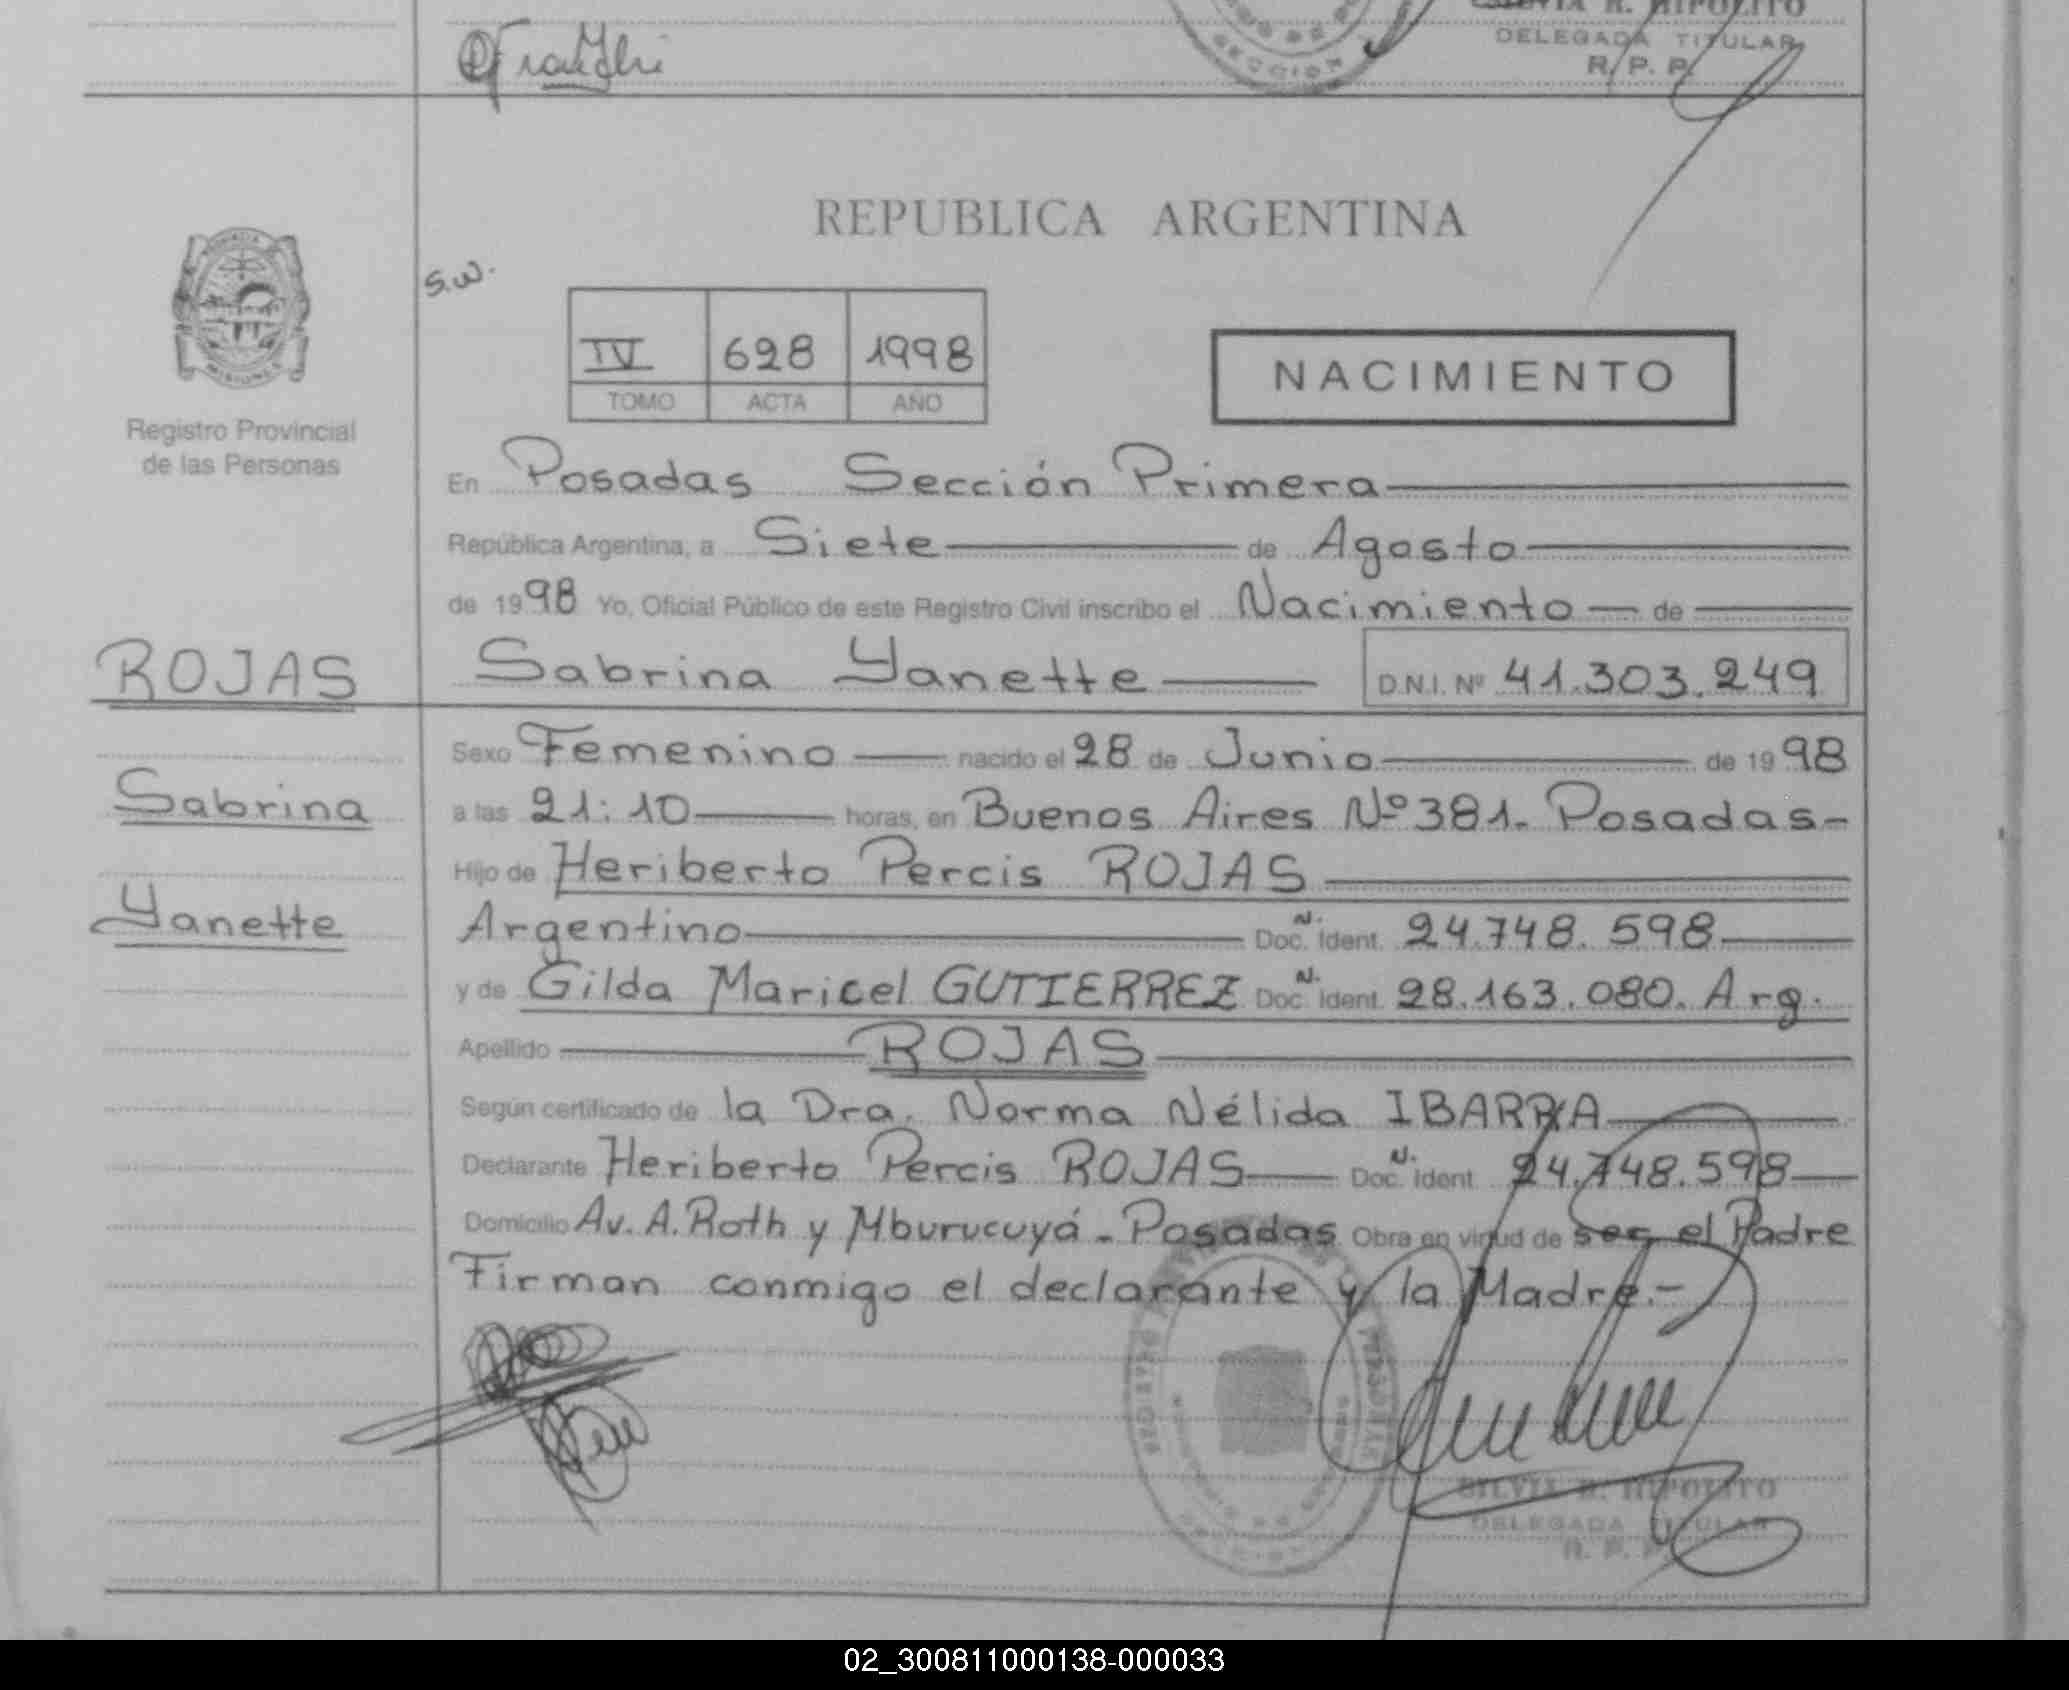 SILVIA R. HIPOLITO
DELEGADA TITULAR
R. P. P.
REPUBLICA ARGENTINA
S.W.
IV 628 1998
TOMO ACTA AÑO
NACIMIENTO
MISIONES
Registro Provincial
de las Personas
En Posadas Sección Primera
República Argentina, a Siete de Agosto
de 1998 Yo, Oficial Público de este Registro Civil inscribo el Nacimiento de
ROJAS
Sabrina Yanette D.N.I. Nº 41.303.249
Sexo Femenino nacido el 28 de Junio de 1998
Sabrina
a las 21:10 horas, en Buenos Aires Nº 381. Posadas-
Hijo de Heriberto Percis ROJAS
Yanette
Argentino Doc. N. Ident. 24.748.598
y de Gilda Maricel GUTIERREZ Doc. N. Ident. 28.163.080. Arg.
Apellido ROJAS
Según certificado de la Dra. Norma Nélida IBARRA
Declarante Heriberto Percis ROJAS Doc. N. Ident. 24.748.598
Domicilio Av. A. Roth y Mburucuyá - Posadas Obra en virtud de ser el Padre
Firman conmigo el declarante y la Madre.-
SILVIA R. HIPOLITO
DELEGADA TITULAR
R. P. P.
02_300811000138-000033